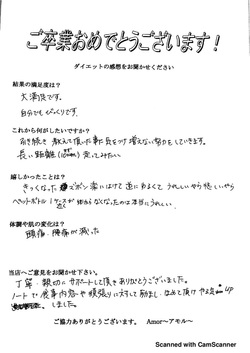 ご卒業おめでとうございます！
ダイエットの感想をお聞かせください
結果の満足度は？
大満足です。
自分でもびっくりです。
これから何がしたいですか？
引き続き 教えて頂いた事に気をつけ増えない努力をしていきます。
長い距離 走ってみたい
嬉しかったことは？
きつくなった ズボン 楽にはけて 逆にゆるくて うれしいやら悔しいやら
ペットボトル1ケース が 無くなったのは本当にうれしい。
体調や肌の変化は？
頭痛、腰痛が減った
当店へご意見をお聞かせ下さい。
丁寧・親切にサポートして頂きありがとうございました。
ノートで食事内容や頑張りに対して励まし、ほめて頂けやる気UP
しました。
ご協力ありがとうございます。 Amor〜アモル〜
Scanned with CamScanner